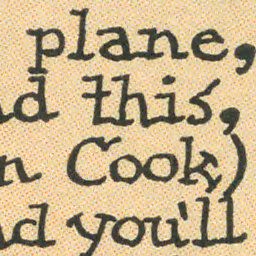 plane,
d this,
n Cook)
d you'll